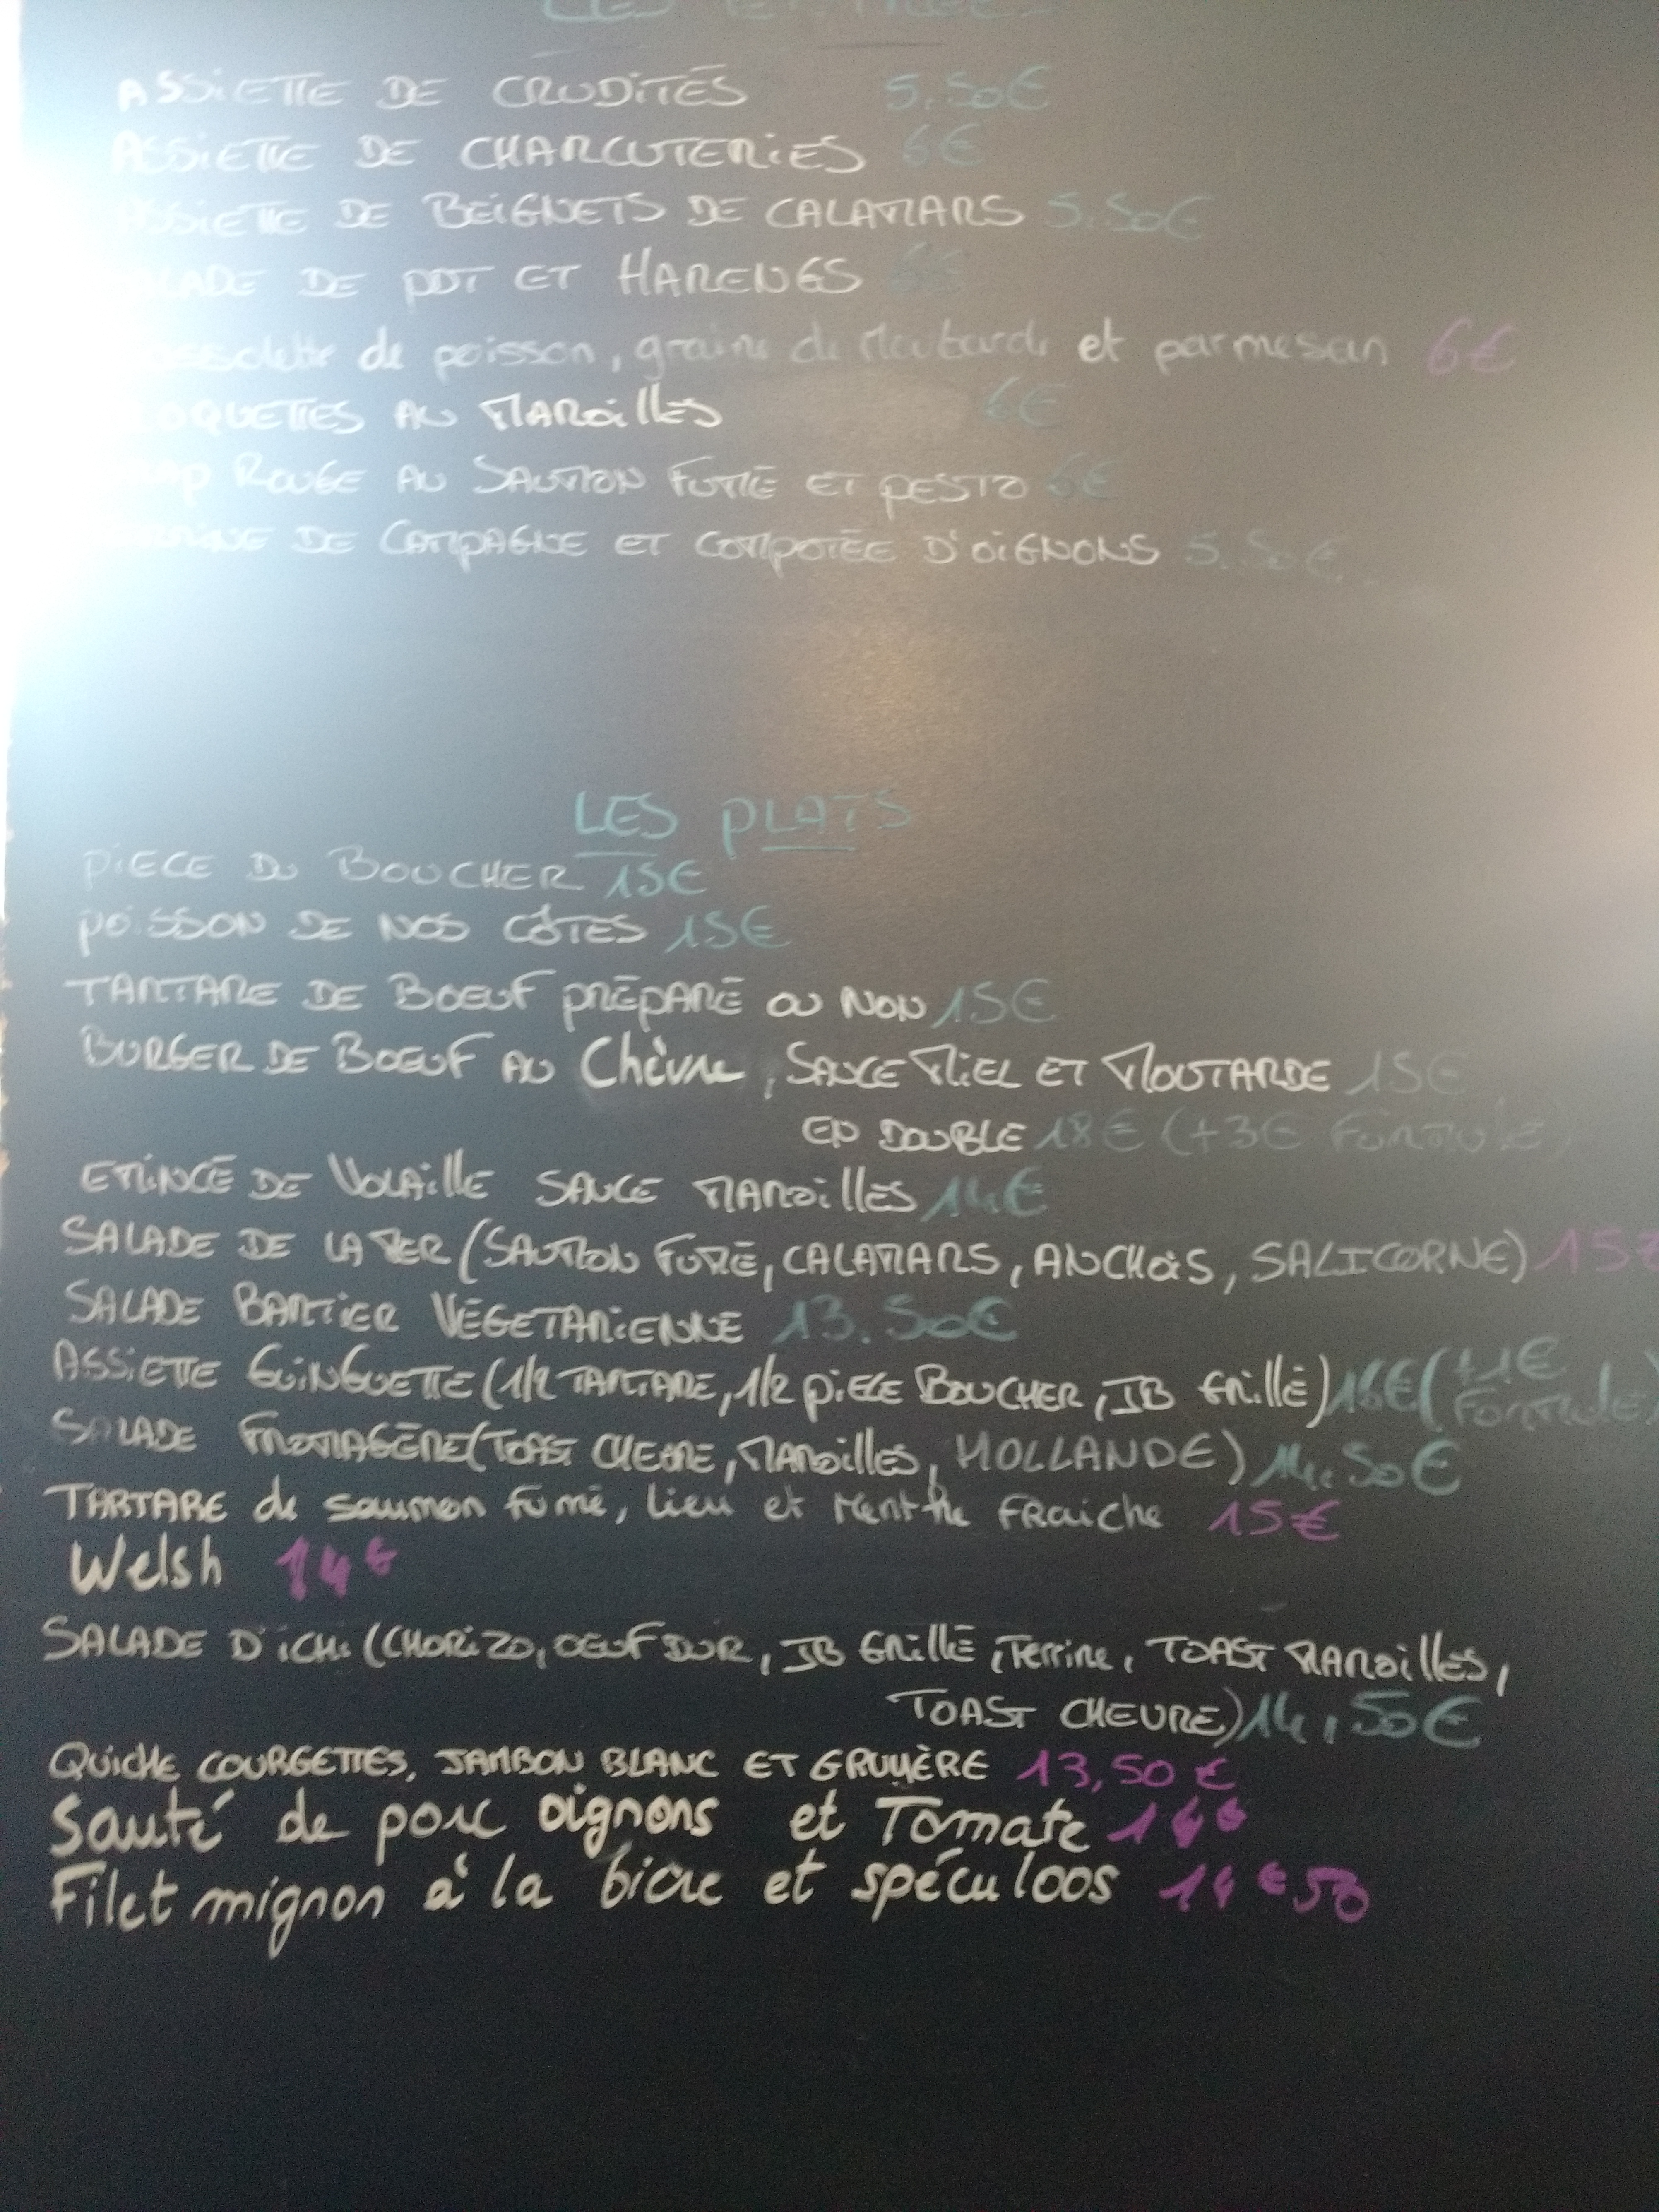 LES ENTRÉES
ASSIETTE DE CRUDITÉS 5.50€
ASSIETTE DE CHARCUTERIES 6€
ASSIETTE DE BEIGNETS DE CALAMARS 5.50€
SALADE DE PDT ET HARENGS 6€
de poisson, graine de Moutarde et parmesan 6€
CROQUETTES AU MAROILLES 6€
WRAP ROUGE AU SAUMON FUMÉ ET PESTO 6€
TERRINE DE CAMPAGNE ET COMPOTÉE D'OIGNONS 5.50€
LES PLATS
PIECE DU BOUCHER 15€
POISSON DE NOS CÔTES 15€
TARTARE DE BOEUF PRÉPARÉ OU NON 15€
BURGER DE BOEUF AU Chèvre, SAUCE MIEL ET MOUTARDE 15€
EN DOUBLE 18€ (+3€ FORMULE)
EMINCÉ DE VOLAILLE SAUCE MAROILLES 14€
SALADE DE LA MER (SAUMON FUMÉ, CALAMARS, ANCHOIS, SALICORNE) 15€
SALADE BARTIER VÉGETARIENNE 13.50€
ASSIETTE GUINGUETTE (1/2 TARTARE, 1/2 PIECE BOUCHER, JB GRILLÉ) 16€ (+1€ FORMULE)
SALADE FROMAGÈRE (TOAST CHEVRE, MAROILLES, HOLLANDE) 14.50€
TARTARE de saumon fumé, lieu et Menthe FRAICHE 15€
Welsh 14€
SALADE D'ICHI (CHORIZO, OEUF DUR, JB GRILLÉ, Terrine, TOAST MAROILLES,
TOAST CHEVRE) 14,50€
QUICHE COURGETTES, JAMBON BLANC ET GRUYÈRE 13,50€
Sauté de porc oignons et Tomate 14€
Filet mignon à la bière et spéculoos 14€50